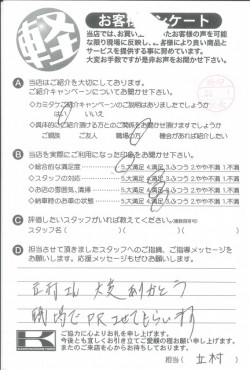 軽
お客様アンケート
当店では、お買い
たお客様の声を可能
な限り現場に反映し、お客様により良い商品と
サービスを提供する事に努めています。
大変お手数ですが是非お声をお聞かせ下さい。
A 当店はご紹介を大切にしてあります。
ご紹介キャンペーンについてお聞かせ下さい。
・カミタケご紹介キャンペーンのご説明はありましたでしょうか
はい いいえ
・具体的にご紹介頂ける方とのご関係をお聞き頂けますでしょうか
ご親族 ご友人 職場の方 機会があれば紹介したい
B 当店を実際にご利用になった印象をお聞かせ下さい。
・総合的な満足度 5.大満足 4.満足 3.ふつう 2.やや不満 1.不満
・スタッフの対応 5.大満足 4.満足 3.ふつう 2.やや不満 1.不満
・お店の雰囲気、清掃 5.大満足 4.満足 3.ふつう 2.やや不満 1.不満
・納車時のお車の状態 5.大満足 4.満足 3.ふつう 2.やや不満 1.不満
C 評価したいスタッフがいれば教えてください。(複数回答可)
スタッフ名( )( )( )
D 担当させて頂きましたスタッフへのご指摘、ご指導メッセージを
お願いします。応援メッセージもぜひお願いします。
立村さん 大変ありがとう
職場でPRさせてもらいます
K
ご協力に心よりお礼を申し上げます。
今後とも宜しくお引き立てご愛顧の程お願い申し上げます。
またのご来店を心からお待ちしております。
担当( 立村 )